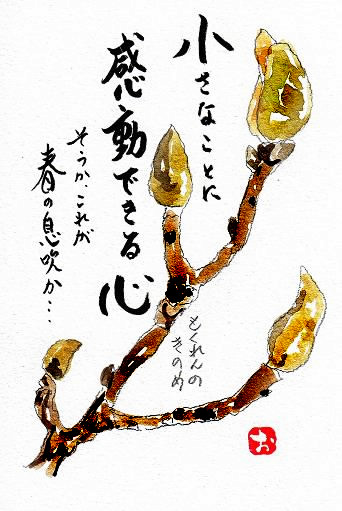 小さなことに
感動できる心
そうか、これが
春の息吹か…
もくれんの
きのめ
お